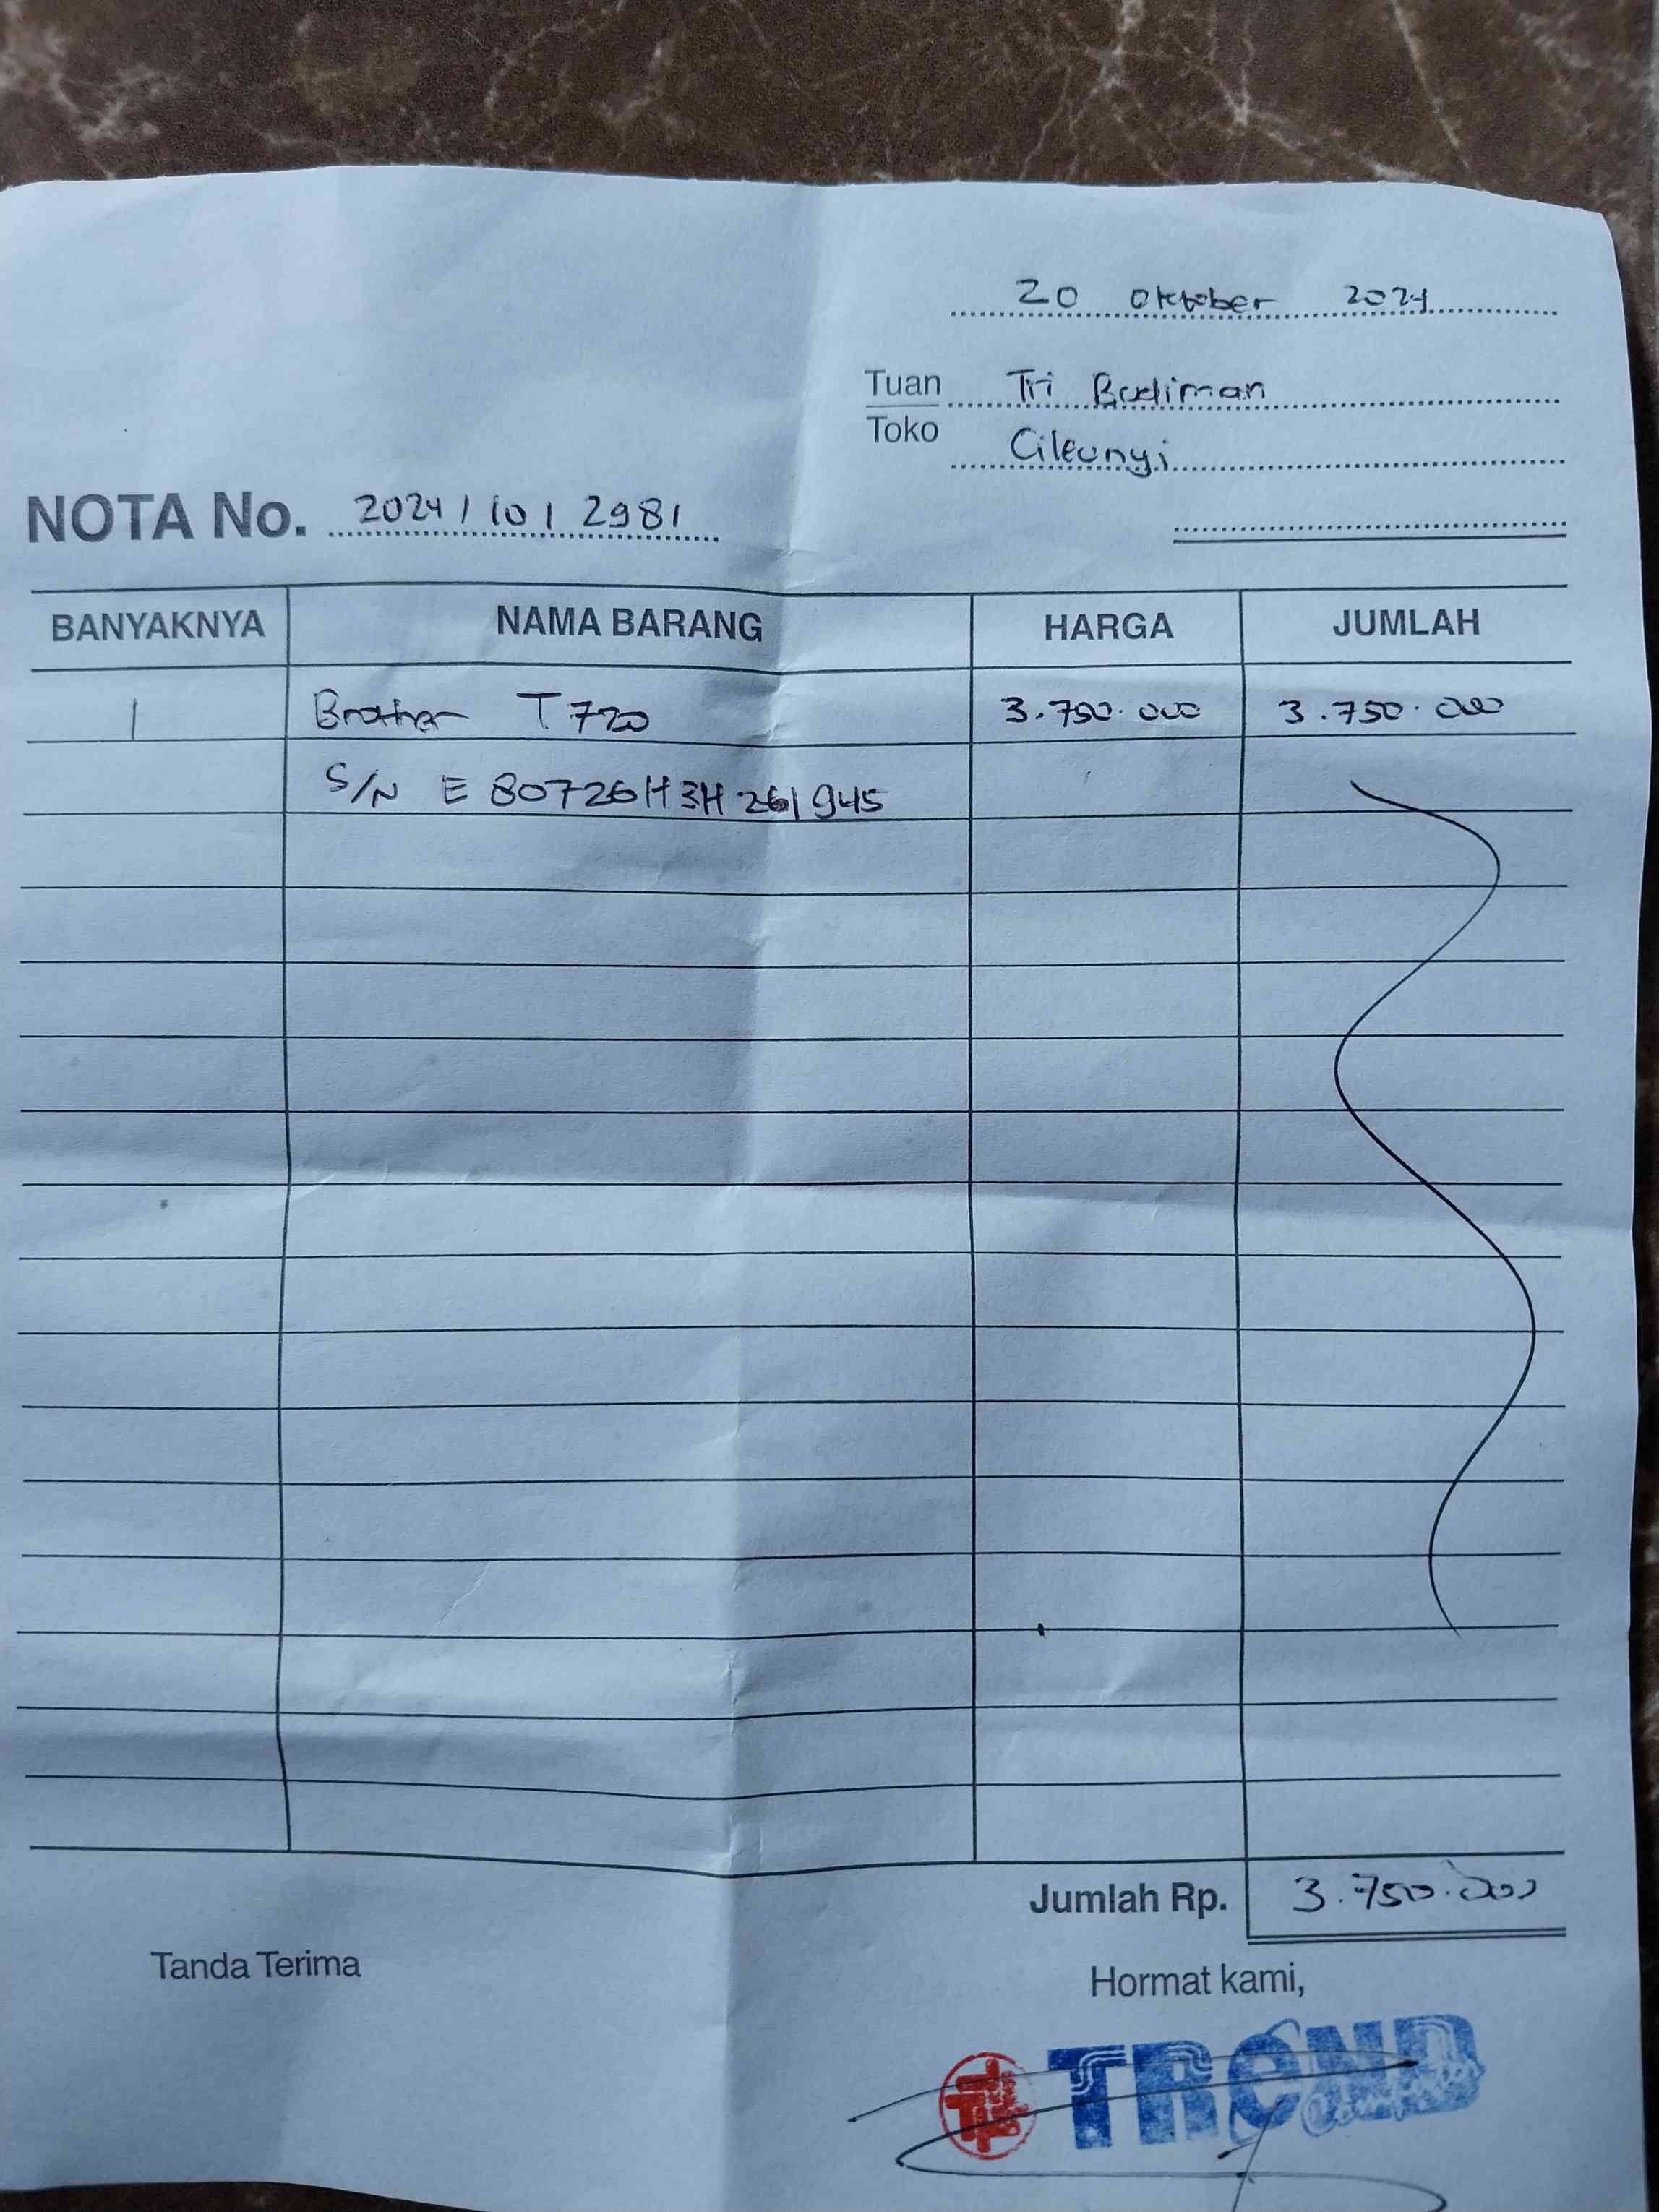 20 Oktober 2024
Tuan Tri Budiman
Toko Cileunyi
NOTA No. 2024/10/2981
BANYAKNYA NAMA BARANG HARGA JUMLAH
1 Brother T720 3.750.000 3.750.000
S/N E80726H3H261945
Jumlah Rp. 3.750.000
Tanda Terima
Hormat kami,
TREND
Computer